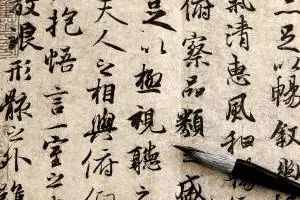 亦足以暢叙幽
氣清惠風和暢
俯察品類之盛
足以極視聽之
夫人之相與俯仰
抱悟言一室之
放浪形骸之外雖